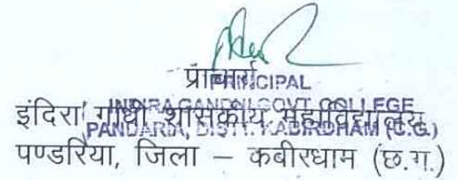 प्राचार्य
PRINCIPAL
इंदिरा गांधी शासकीय महाविद्यालय
INDIRA GANDHI GOVT. COLLEGE
PANDARIA, DISTT. KABIRDHAM (C.G.)
पण्डरिया, जिला – कबीरधाम (छ.ग.)